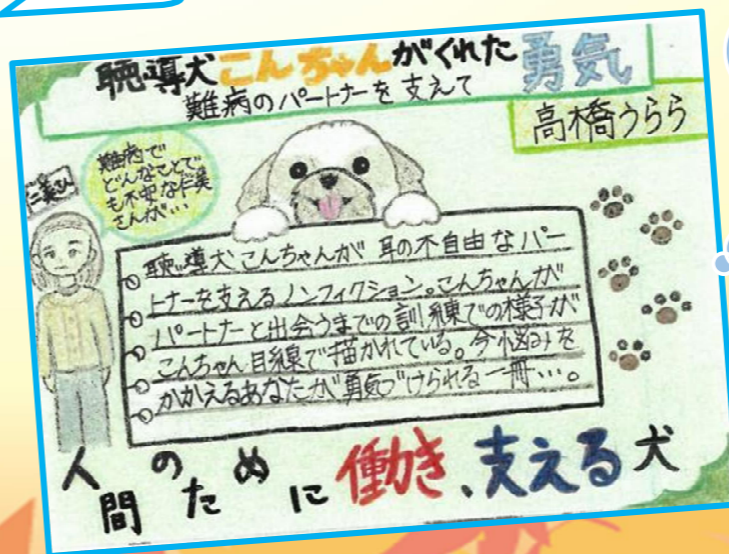 聴導犬こんちゃんがくれた勇気
難病のパートナーを支えて
高橋うらら
仁美さん
難病で
どんなことで
も不安な仁美
さんが…
聴導犬こんちゃんが耳の不自由なパー
トナーを支えるノンフィクション。こんちゃんが
パートナーと出会うまでの訓練での様子が
こんちゃん目線で描かれている。今悩みを
かかえるあなたが勇気づけられる一冊…。
人間のために働き、支える犬